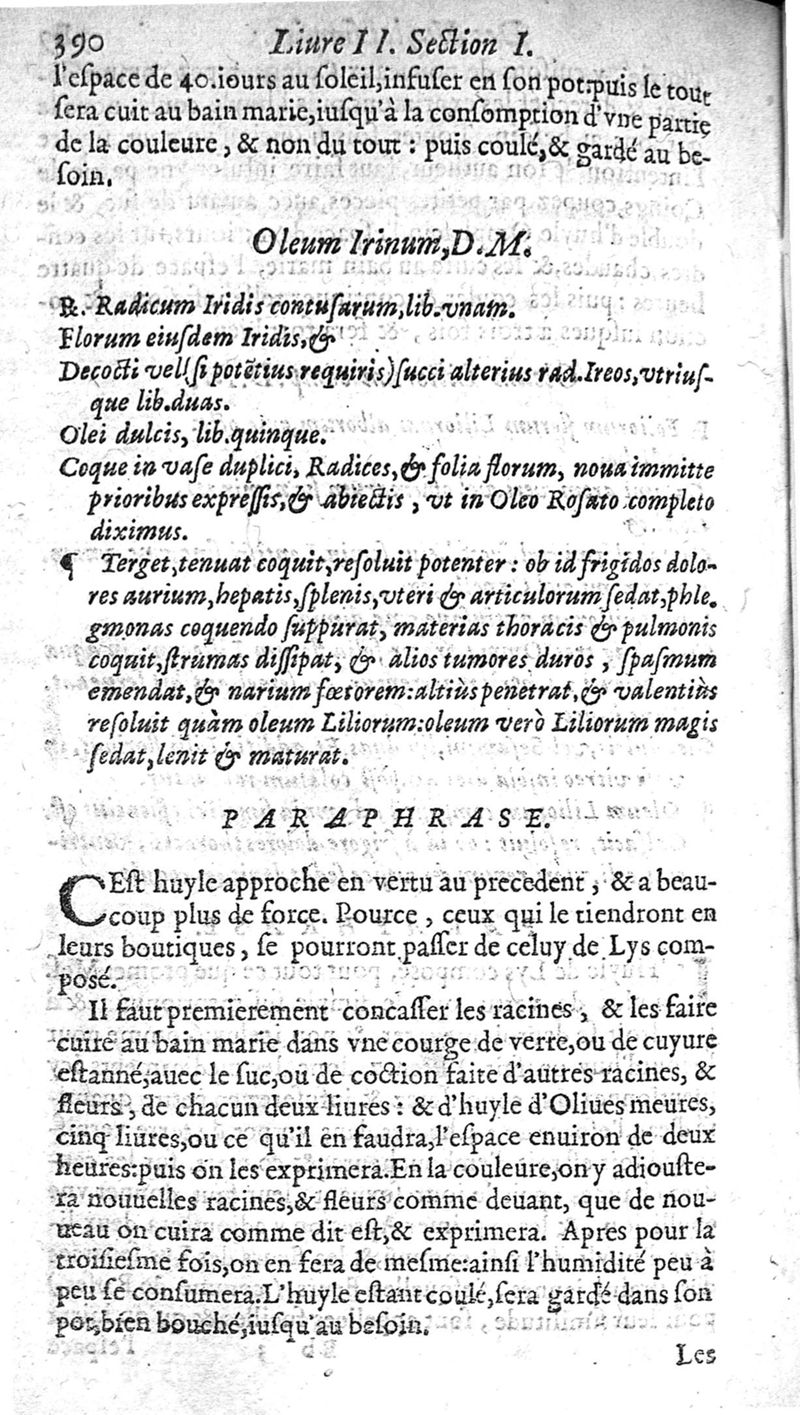 390 Liure II. Section I.
l'eſpace de 40.iours au ſoleil,infuſer en ſon pot:puis le tout
ſera cuit au bain marie,iuſqu'à la conſomption d'vne partie
de la couleure, & non du tout : puis coulé,& gardé au be-
ſoin.
Oleum Irinum,D.M.
R. Radicum Iridis contuſarum,lib.vnam.
Florum eiuſdem Iridis,&
Decocti vel(ſi potētius requiris)ſucci alterius rad.Ireos,vtriuſ-
que lib.duas.
Olei dulcis, lib.quinque.
Coque in vaſe duplici, Radices,& folia florum, noua immitte
prioribus expreſſis,& abiectis , vt in Oleo Roſato completo
diximus.
¶ Terget,tenuat coquit,reſoluit potenter : ob id frigidos dolo-
res aurium,hepatis,ſplenis,vteri & articulorum ſedat,phle.
gmonas coquendo ſuppurat, materias thoracis & pulmonis
coquit,ſtrumas diſſipat, & alios tumores duros , ſpaſmum
emendat,& narium fœtorem:altiùs penetrat,& valentiùs
reſoluit quàm oleum Liliorum:oleum verò Liliorum magis
ſedat,lenit & maturat.
PARAPHRASE.
CEſt huyle approche en vertu au precedent , & a beau-
coup plus de force. Pource , ceux qui le tiendront en
leurs boutiques , ſe pourront paſſer de celuy de Lys com-
posé.
Il faut premierement concaſſer les racines , & les faire
cuire au bain marie dans vne courge de verre,ou de cuyure
eſtanné,auec le ſuc,ou de coction faite d'autres racines, &
fleurs , de chacun deux liures : & d'huyle d'Oliues meures,
cinq liures,ou ce qu'il en faudra,l'eſpace enuiron de deux
heures:puis on les exprimera.En la couleure,on y adiouſte-
ra nouuelles racines,& fleurs comme deuant, que de nou-
ueau on cuira comme dit eſt,& exprimera. Apres pour la
troiſieſme fois,on en fera de meſme:ainſi l'humidité peu à
peu ſe conſumera.L'huyle eſtant coulé,ſera gardé dans ſon
pot,bien bouché,iuſqu'au beſoin.
Les